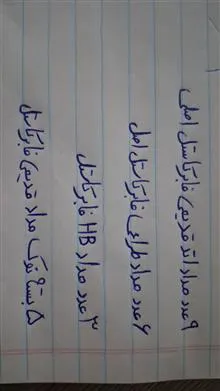 ۹ عدد مداد اتد قدیمی فابرکاستل اصلی
۶ عدد مداد طراحی فابرکاستل اصل
۳ عدد مداد HB فابرکاستل
۵ بسته نوک مداد قدیمی فابرکاستل